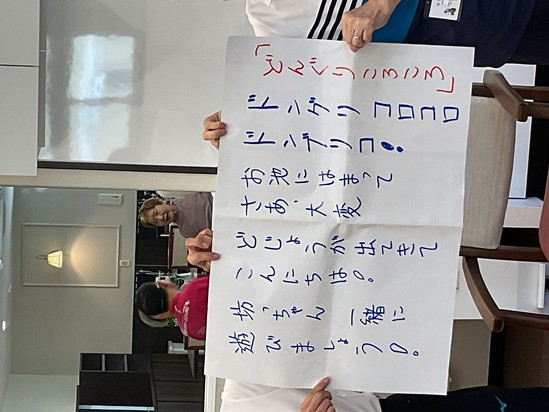 「どんぐりころころ」
ドングリ コロコロ
ドンブリコ!
お池にはまって
さあ、大変
どじょうが出てきて
こんにちは。
坊っちゃん 一緒に
遊びましょう。